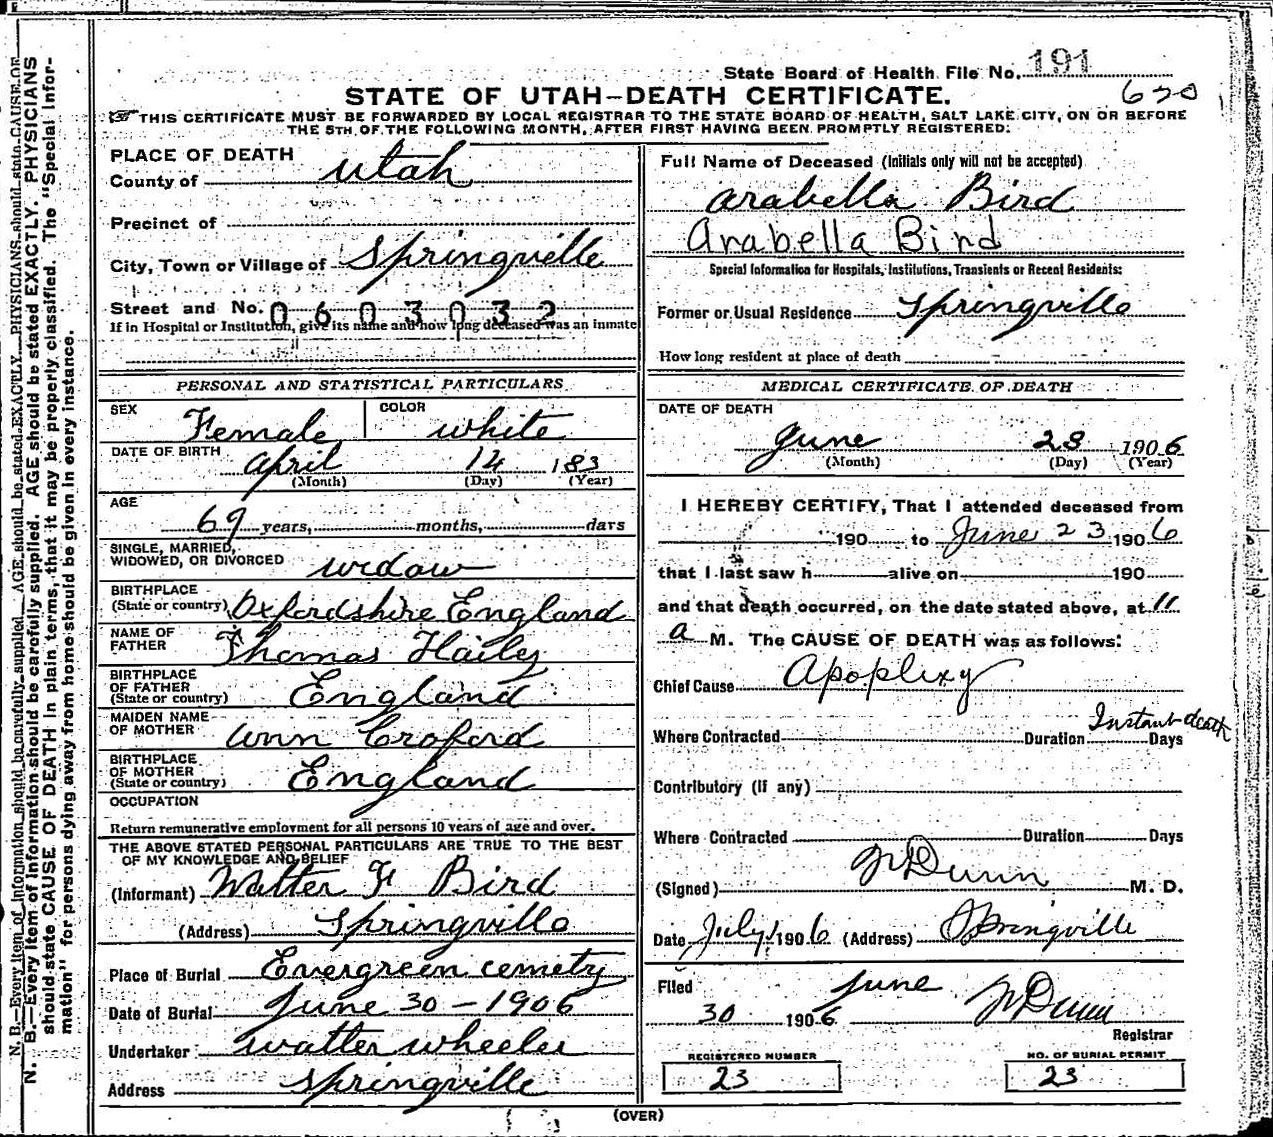 State Board of Health File No. 191
STATE OF UTAH-DEATH CERTIFICATE.
620
THIS CERTIFICATE MUST BE FORWARDED BY LOCAL REGISTRAR TO THE STATE BOARD OF HEALTH, SALT LAKE CITY, ON OR BEFORE
THE 5TH OF THE FOLLOWING MONTH, AFTER FIRST HAVING BEEN PROMPTLY REGISTERED:
PLACE OF DEATH
County of Utah
Precinct of
City, Town or Village of Springville
Street and No. 0603032
If in Hospital or Institution, give its name and how long deceased was an inmate
PERSONAL AND STATISTICAL PARTICULARS
SEX Female COLOR white
DATE OF BIRTH April 14 183
(Month) (Day) (Year)
AGE
69 years, months, days
SINGLE, MARRIED,
WIDOWED, OR DIVORCED widow
BIRTHPLACE
(State or country) Oxfordshire England
NAME OF
FATHER Thomas Haily
BIRTHPLACE
OF FATHER
(State or country) England
MAIDEN NAME
OF MOTHER Ann Croford
BIRTHPLACE
OF MOTHER
(State or country) England
OCCUPATION
Return remunerative employment for all persons 10 years of age and over.
THE ABOVE STATED PERSONAL PARTICULARS ARE TRUE TO THE BEST
OF MY KNOWLEDGE AND BELIEF
(Informant) Walter F Bird
(Address) Springville
Place of Burial Evergreen cemety
Date of Burial June 30-1906
Undertaker Walter Wheeler
Address Springville
Full Name of Deceased (Initials only will not be accepted)
Arabella Bird
Arabella Bird
Special Information for Hospitals, Institutions, Transients or Recent Residents:
Former or Usual Residence Springville
How long resident at place of death
MEDICAL CERTIFICATE OF DEATH
DATE OF DEATH
June 28 1906
(Month) (Day) (Year)
I HEREBY CERTIFY, That I attended deceased from
190 to June 23 1906
that I last saw h alive on 190
and that death occurred, on the date stated above, at 11
a M. The CAUSE OF DEATH was as follows:
Chief Cause Apoplexy
Where Contracted Duration Instant death Days
Contributory (if any)
Where Contracted Duration Days
(Signed) Dunn M. D.
Date July 1 1906 (Address) Springville
Filed June
30 1906 Dunn
Registrar
REGISTERED NUMBER
23
NO. OF BURIAL PERMIT
23
(OVER)
N. B.—Every item of information should be carefully supplied. AGE should be stated EXACTLY. PHYSICIANS should state CAUSE OF
N. B.—Every item of information should be carefully supplied. AGE should be stated EXACTLY. PHYSICIANS
should state CAUSE OF DEATH in plain terms, that it may be properly classified. The "Special Infor-
mation" for persons dying away from home should be given in every instance.